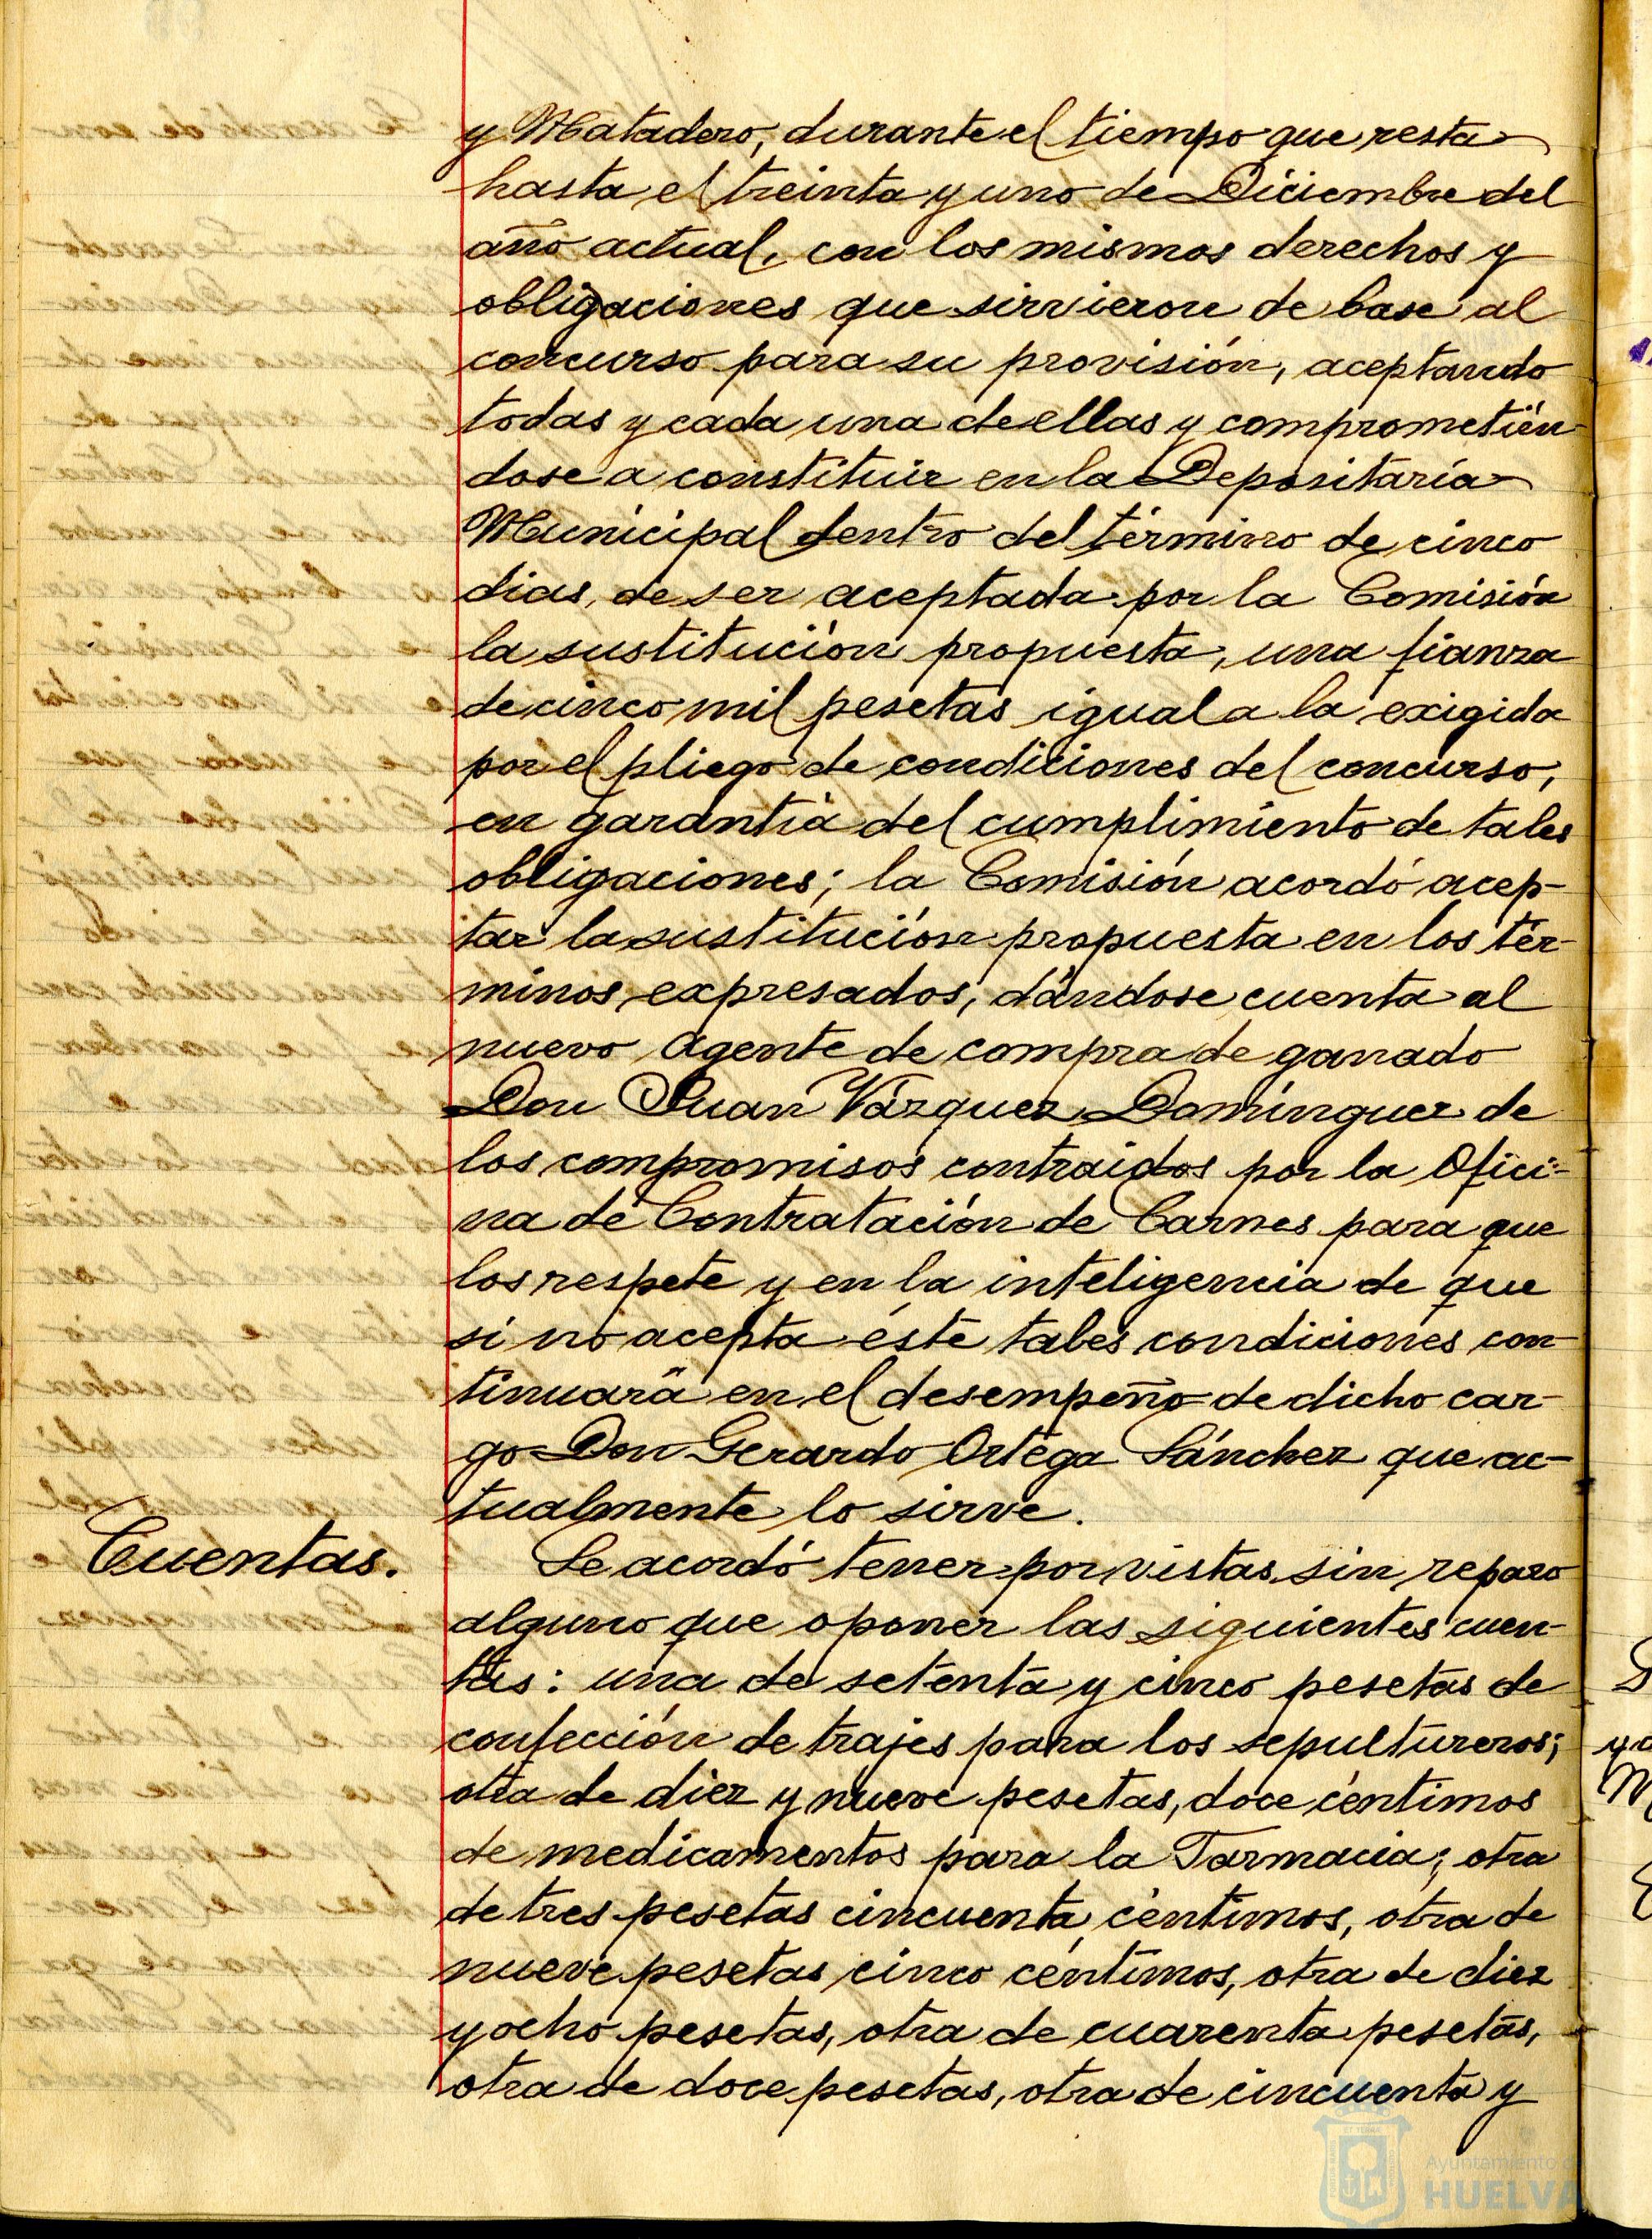 y Matadero, durante el tiempo que resta
hasta el treinta y uno de Diciembre del
año actual, con los mismos derechos y
obligaciones que sirvieron de base al
concurso para su provisión, aceptando
todas y cada una de ellas y comprometién-
dose a constituir en la Depositaría
Municipal dentro del término de cinco
dias, de ser aceptada por la Comisión
la sustitución propuesta, una fianza
de cinco mil pesetas igual a la exigida
por el pliego de condiciones del concurso,
en garantía del cumplimiento de tales
obligaciones; la Comisión acordó acep-
tar la sustitución propuesta en los tér-
minos expresados, dándose cuenta al
nuevo Agente de compra de ganado
Don Juan Vázquez Domínguez de
los compromisos contraidos por la Ofici-
na de Contratación de Carnes para que
los respete y en la inteligencia de que
si no acepta éste tales condiciones con-
tinuará en el desempeño de dicho car-
go Don Gerardo Ortega Sánchez que ac-
tualmente lo sirve.
Cuentas. Se acordó tener por vistas sin reparo
alguno que oponer las siguientes cuen-
tas: una de setenta y cinco pesetas de
confección de trajes para los sepultureros;
otra de diez y nueve pesetas, doce céntimos
de medicamentos para la Farmacia; otra
de tres pesetas cincuenta céntimos, otra de
nueve pesetas cinco céntimos, otra de diez
y ocho pesetas, otra de cuarenta pesetas,
otra de doce pesetas, otra de cincuenta y
Ayuntamiento de
HUELVA